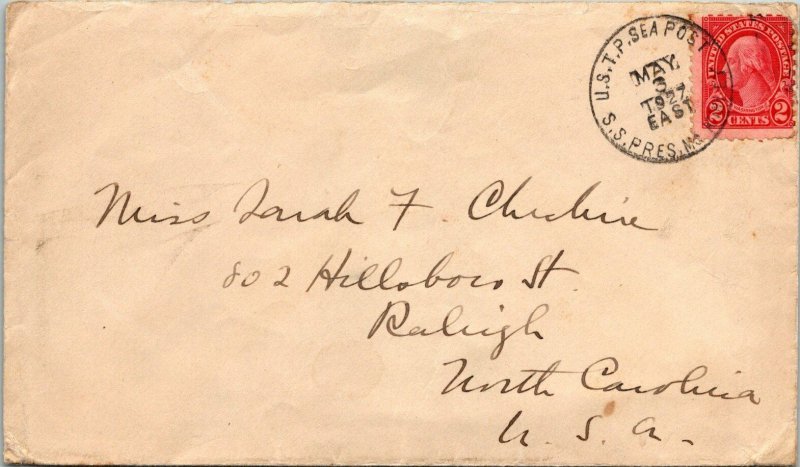 U.S.T.P. SEA POST
MAY
3
1927
EAST
S.S. PRES. Mc
UNITED STATES POSTAGE
2 CENTS 2
Miss Sarah F. Cheshire
802 Hillsboro St.
Raleigh
North Carolina
U. S. A.